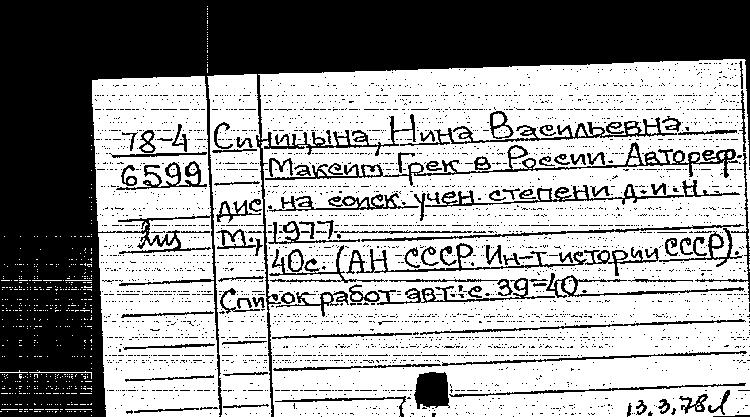 78-4 Синицына, Нина Васильевна.
6599 Максим Грек в России. Автореф.
дис. на соиск. учен. степени д.и.н.
М., 1977.
40с. (АН СССР. Ин-т истории СССР).
Список работ авт.: с. 39-40.
13.3.78